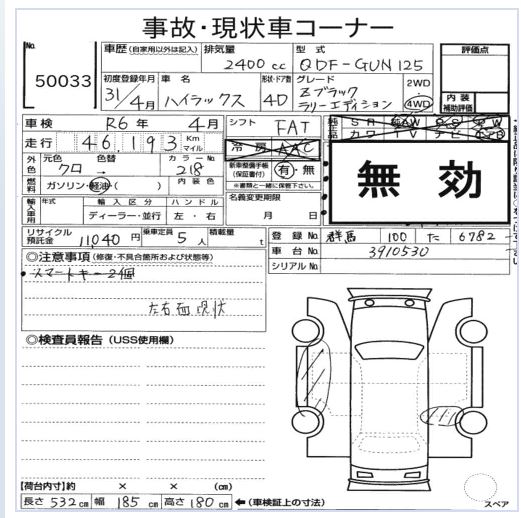 事故・現状車コーナー
No. 50033
車歴 (自家用以外は記入) 排気量 2400cc 型式 QDF-GUN125
評価点
初度登録年月 31/4月 車名 ハイラックス 形状・ドア数 4D グレード Zブラックラリーエディション 2WD 4WD
内装補助評価
車検 R6年 4月 シフト FAT
走行 46,193 Km マイル 冷房 AAC
無効
外色 元色 クロ 色替 → カラーNo. 218
新車整備手帳(保証書付) 有・無
※書類と一緒に保管下さい。
燃料 ガソリン・軽油・( ) 内装色
名義変更期限 月 日
輸入車用 年式 輸入区分 ディーラー・並行 ハンドル 左・右
リサイクル預託金 11040円 乗車定員 5人 積載量 t
登録No. 群馬 100 た 6782
車台No. 3910530
シリアルNo.
◎注意事項 (修復・不具合箇所および状態等)
スマートキー2個
左右面現状
◎検査員報告 (USS使用欄)
【荷台内寸】約 × × (cm)
長さ 532cm 幅 185cm 高さ 180cm ←(車検証上の寸法)
スペア